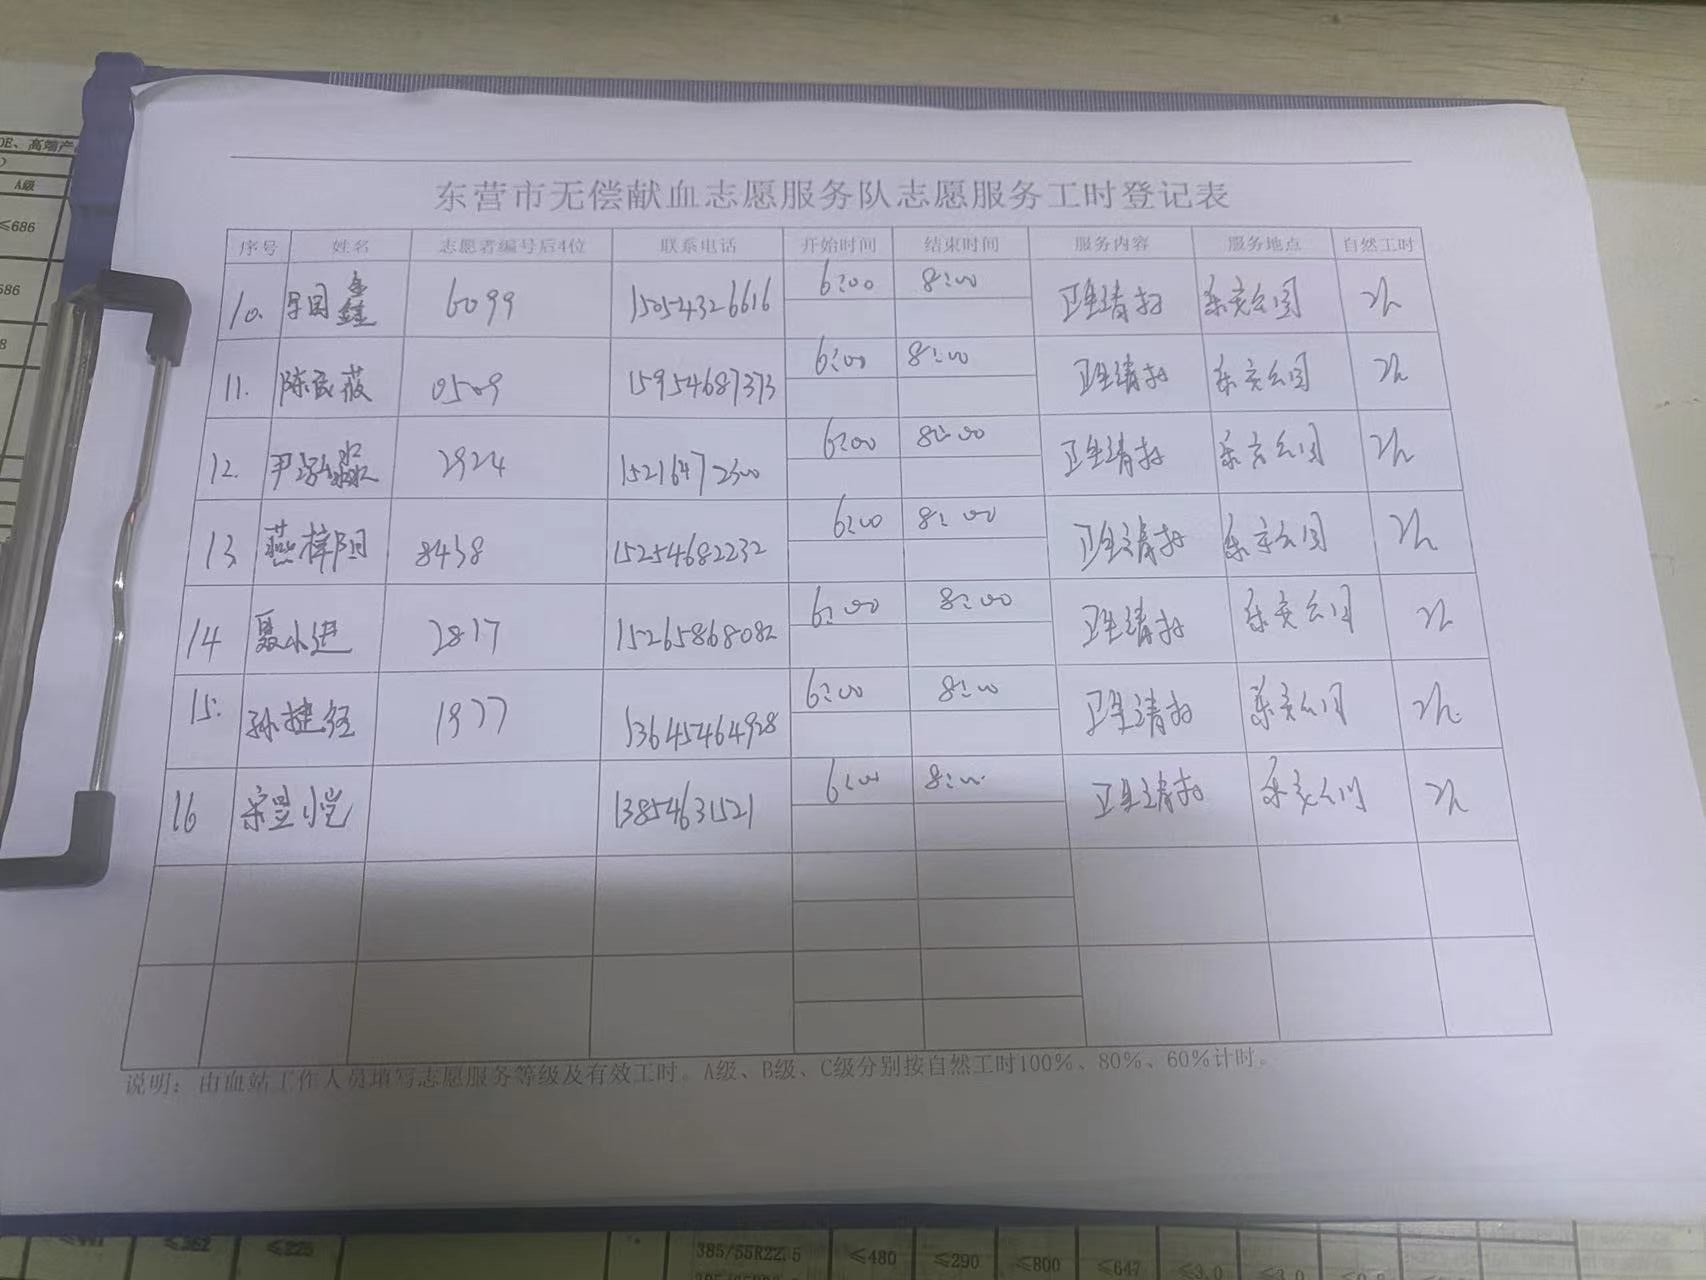 OE、高端产
A级
≤686
686
8
东营市无偿献血志愿服务队志愿服务工时登记表
序号 姓名 志愿者编号后4位 联系电话 开始时间 结束时间 服务内容 服务地点 自然工时
10. 国鑫 6099 15054326616 6:00 8:00 卫生清扫 公园 2h
11. 陈 0509 15954687373 6:00 8:00 卫生清扫 公园 2h
12. 尹 淼 2924 15216472300 6:00 8:00 卫生清扫 公园 2h
13 燕梓阳 8438 15254682232 6:00 8:00 卫生清扫 公园 2h
14 聂小进 2817 15265868082 6:00 8:00 卫生清扫 公园 2h
15. 孙建经 1977 13645464928 6:00 8:00 卫生清扫 公园 2h.
16 宋 13854631521 6:00 8:00 卫生清扫 公园 2h
说明：由血站工作人员填写志愿服务等级及有效工时。A级、B级、C级分别按自然工时100%、80%、60%计时。
≤362 ≤225 385/55R22.5 ≤480 ≤290 ≤800 ≤647 ≤3.0